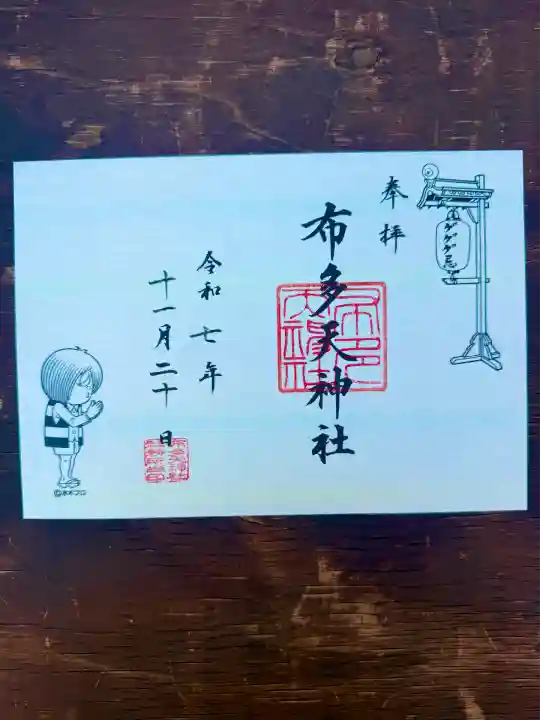 奉拝
ゲゲゲ忌
布多天神社
令和七年
十一月二十日
©水木プロ